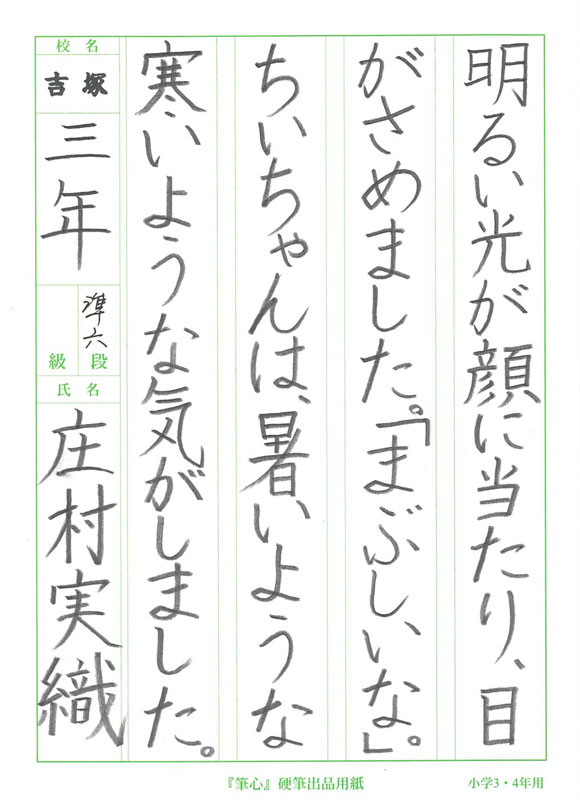 明るい光が顔に当たり、目
がさめました。「まぶしいな」。
ちいちゃんは、暑いような
寒いような気がしました。
校名
吉塚
三年
準六
級段
氏名
庄村実織
『筆心』硬筆出品用紙
小学3・4年用